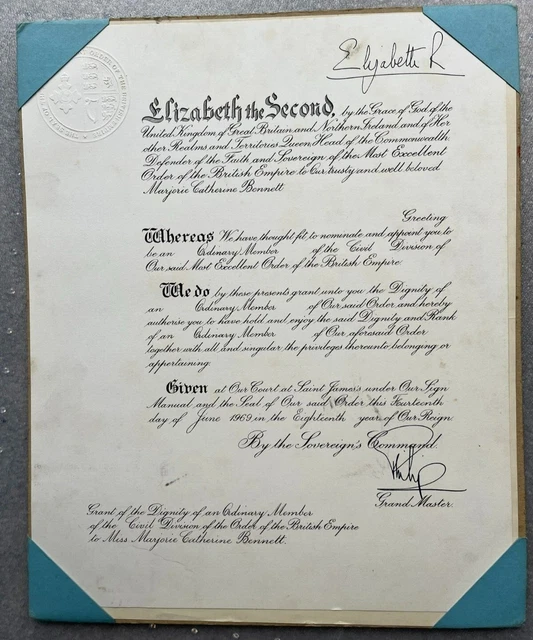 Elizabeth R
Elizabeth the Second, by the Grace of God, of the
United Kingdom of Great Britain and Northern Ireland and of Her
other Realms and Territories Queen, Head of the Commonwealth,
Defender of the Faith and Sovereign of the Most Excellent
Order of the British Empire to Our trusty and well beloved
Marjorie Catherine Bennett
Greeting
Whereas We have thought fit to nominate and appoint you to
be an Ordinary Member of the Civil Division of
Our said Most Excellent Order of the British Empire.
We do by these presents grant unto you the Dignity of
an Ordinary Member of Our said Order and hereby
authorise you to have hold and enjoy the said Dignity and Rank
of an Ordinary Member of Our aforesaid Order
together with all and singular the privileges thereunto belonging or
appertaining.
Given at Our Court at Saint James's under Our Sign
Manual and the Seal of Our said Order this Fourteenth
day of June 1969 in the Eighteenth year of Our Reign.
By the Sovereign's Command.
Philip
Grand Master.
Grant of the Dignity of an Ordinary Member
of the Civil Division of the Order of the British Empire
to Miss Marjorie Catherine Bennett.